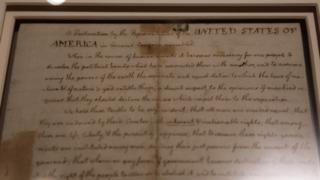 A Declaration by the Representatives of the UNITED STATES OF
AMERICA in General Congress assembled
When in the course of human events it becomes necessary for one people to
dissolve the political bands which have connected them with another, and to
among the powers of the earth the and equal station to which the laws of na-
-ture & of nature's god entitle them, a decent respect to the opinions of mankind re-
-quires that they should declare the causes which impel them to the separation.
We hold these truths to be that all men are created equal; that
they are endowed by their Creator with inalienable rights; that among
these are life, liberty & the pursuit of happiness; that to secure these rights, govern-
-ments are instituted among men, deriving their just powers from the consent of the
governed; that whenever any form of government becomes destructive of these
the right of the people to alter or to abolish it, and to institute